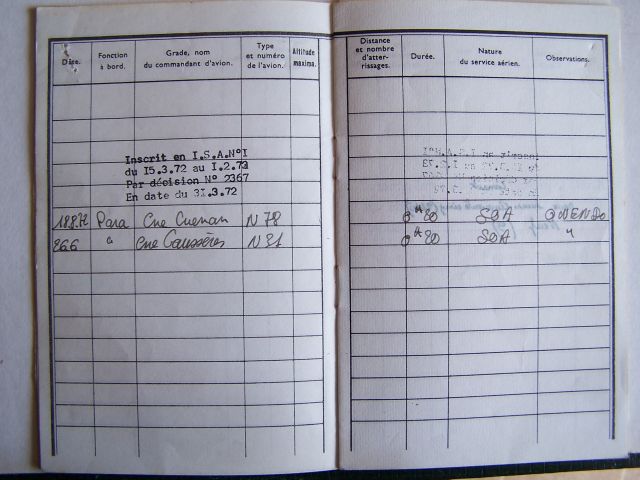 Date.
Fonction à bord.
Grade, nom du commandant d'avion.
Type et numéro de l'avion.
Altitude maxima.
Inscrit en I.S.A.N°I
du I5.3.72 au I.2.73
Par décision N° 2367
En date du 3I.3.72
18.8.72 Para Cne Cuenan N 78
" Cne Gaussères N 81
Distance et nombre d'atterrissages.
Durée.
Nature du service aérien.
Observations.
0 H 20 SOA OWENDO
0 H 20 SOA "